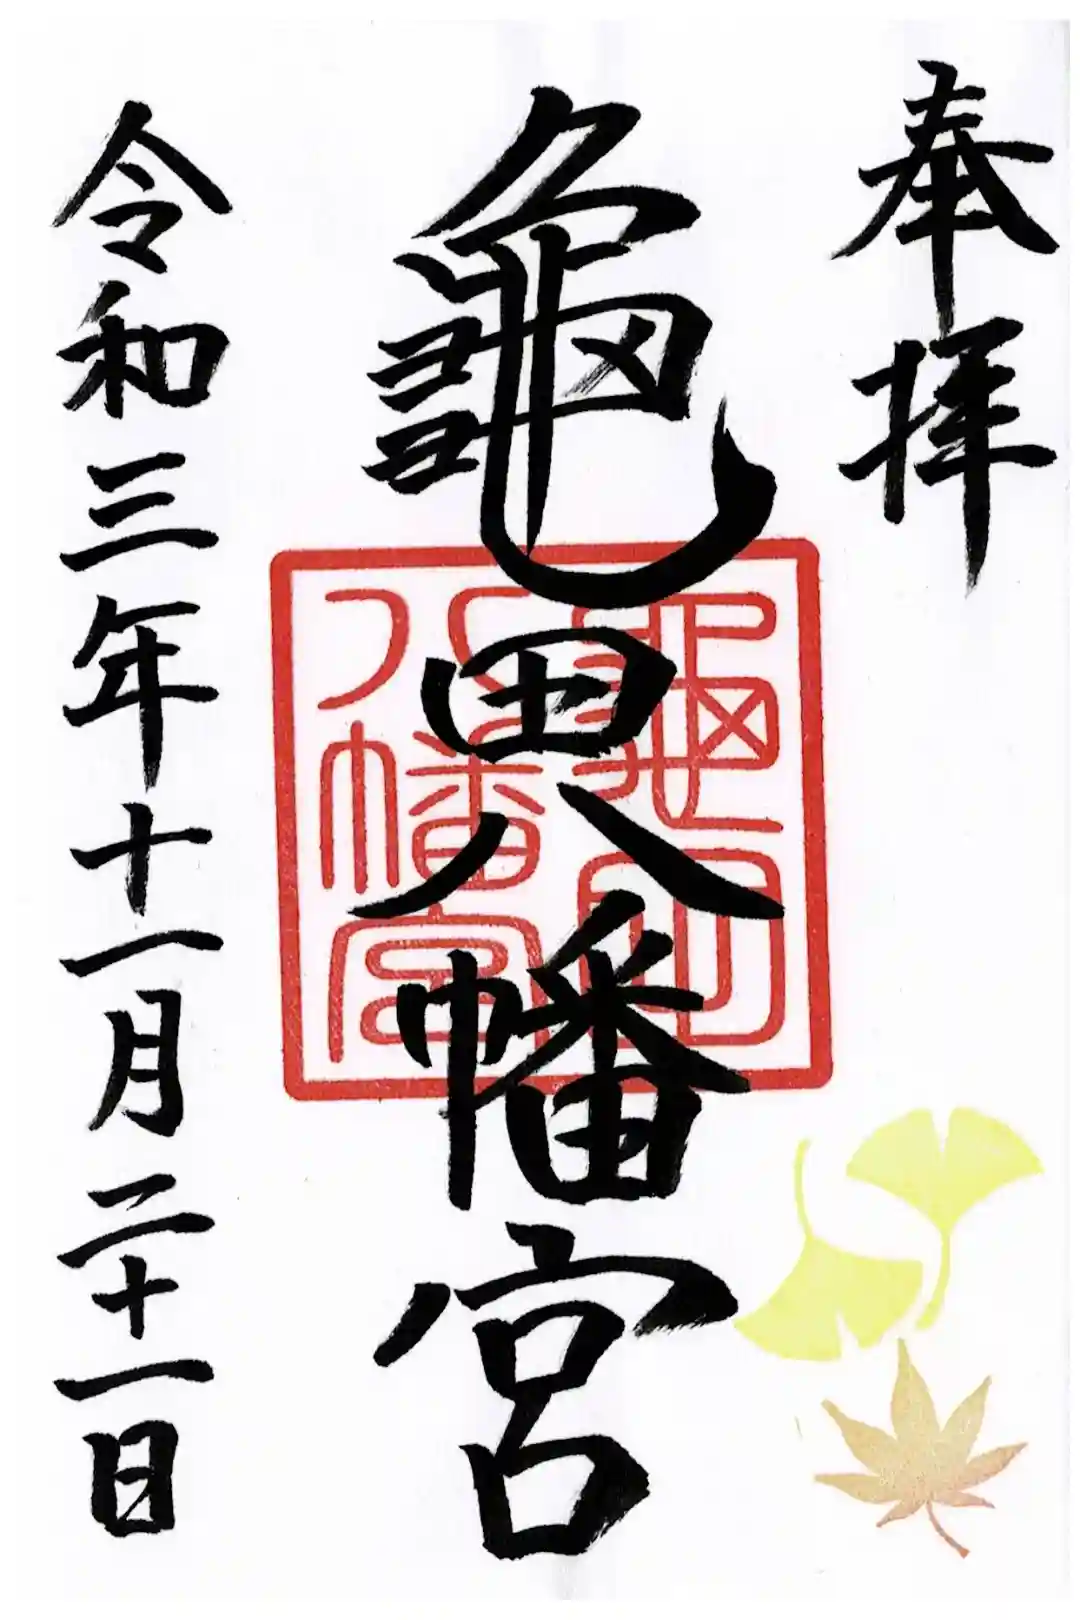 奉拝
龜田八幡宮
龜田
八幡宮
令和三年十一月二十一日